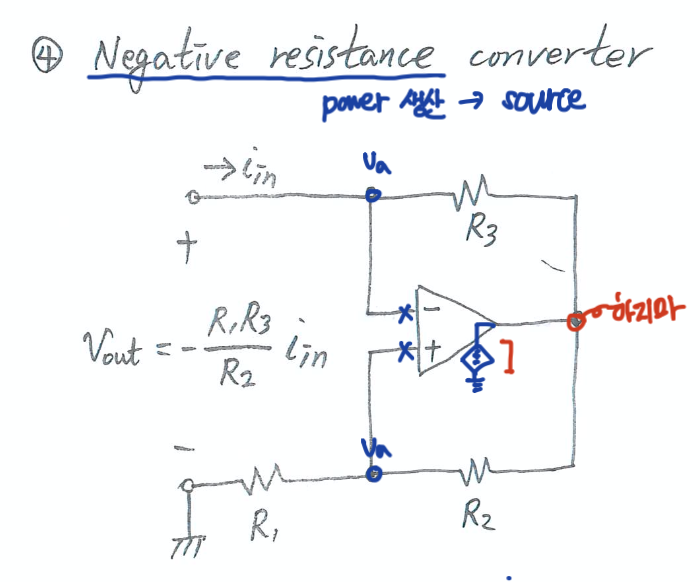 ④ Negative resistance converter
power 생산 → source
→ i_in
Va
R3
+
−
하지마
Vout = - R1R3/R2 i_in
+
Va
−
R1
R2